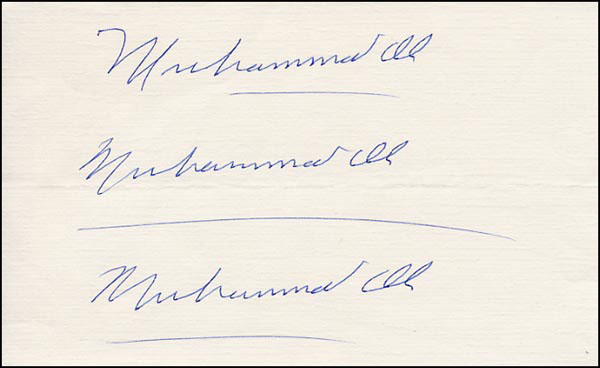 Muhammad Ali
Muhammad Ali
Muhammad Ali